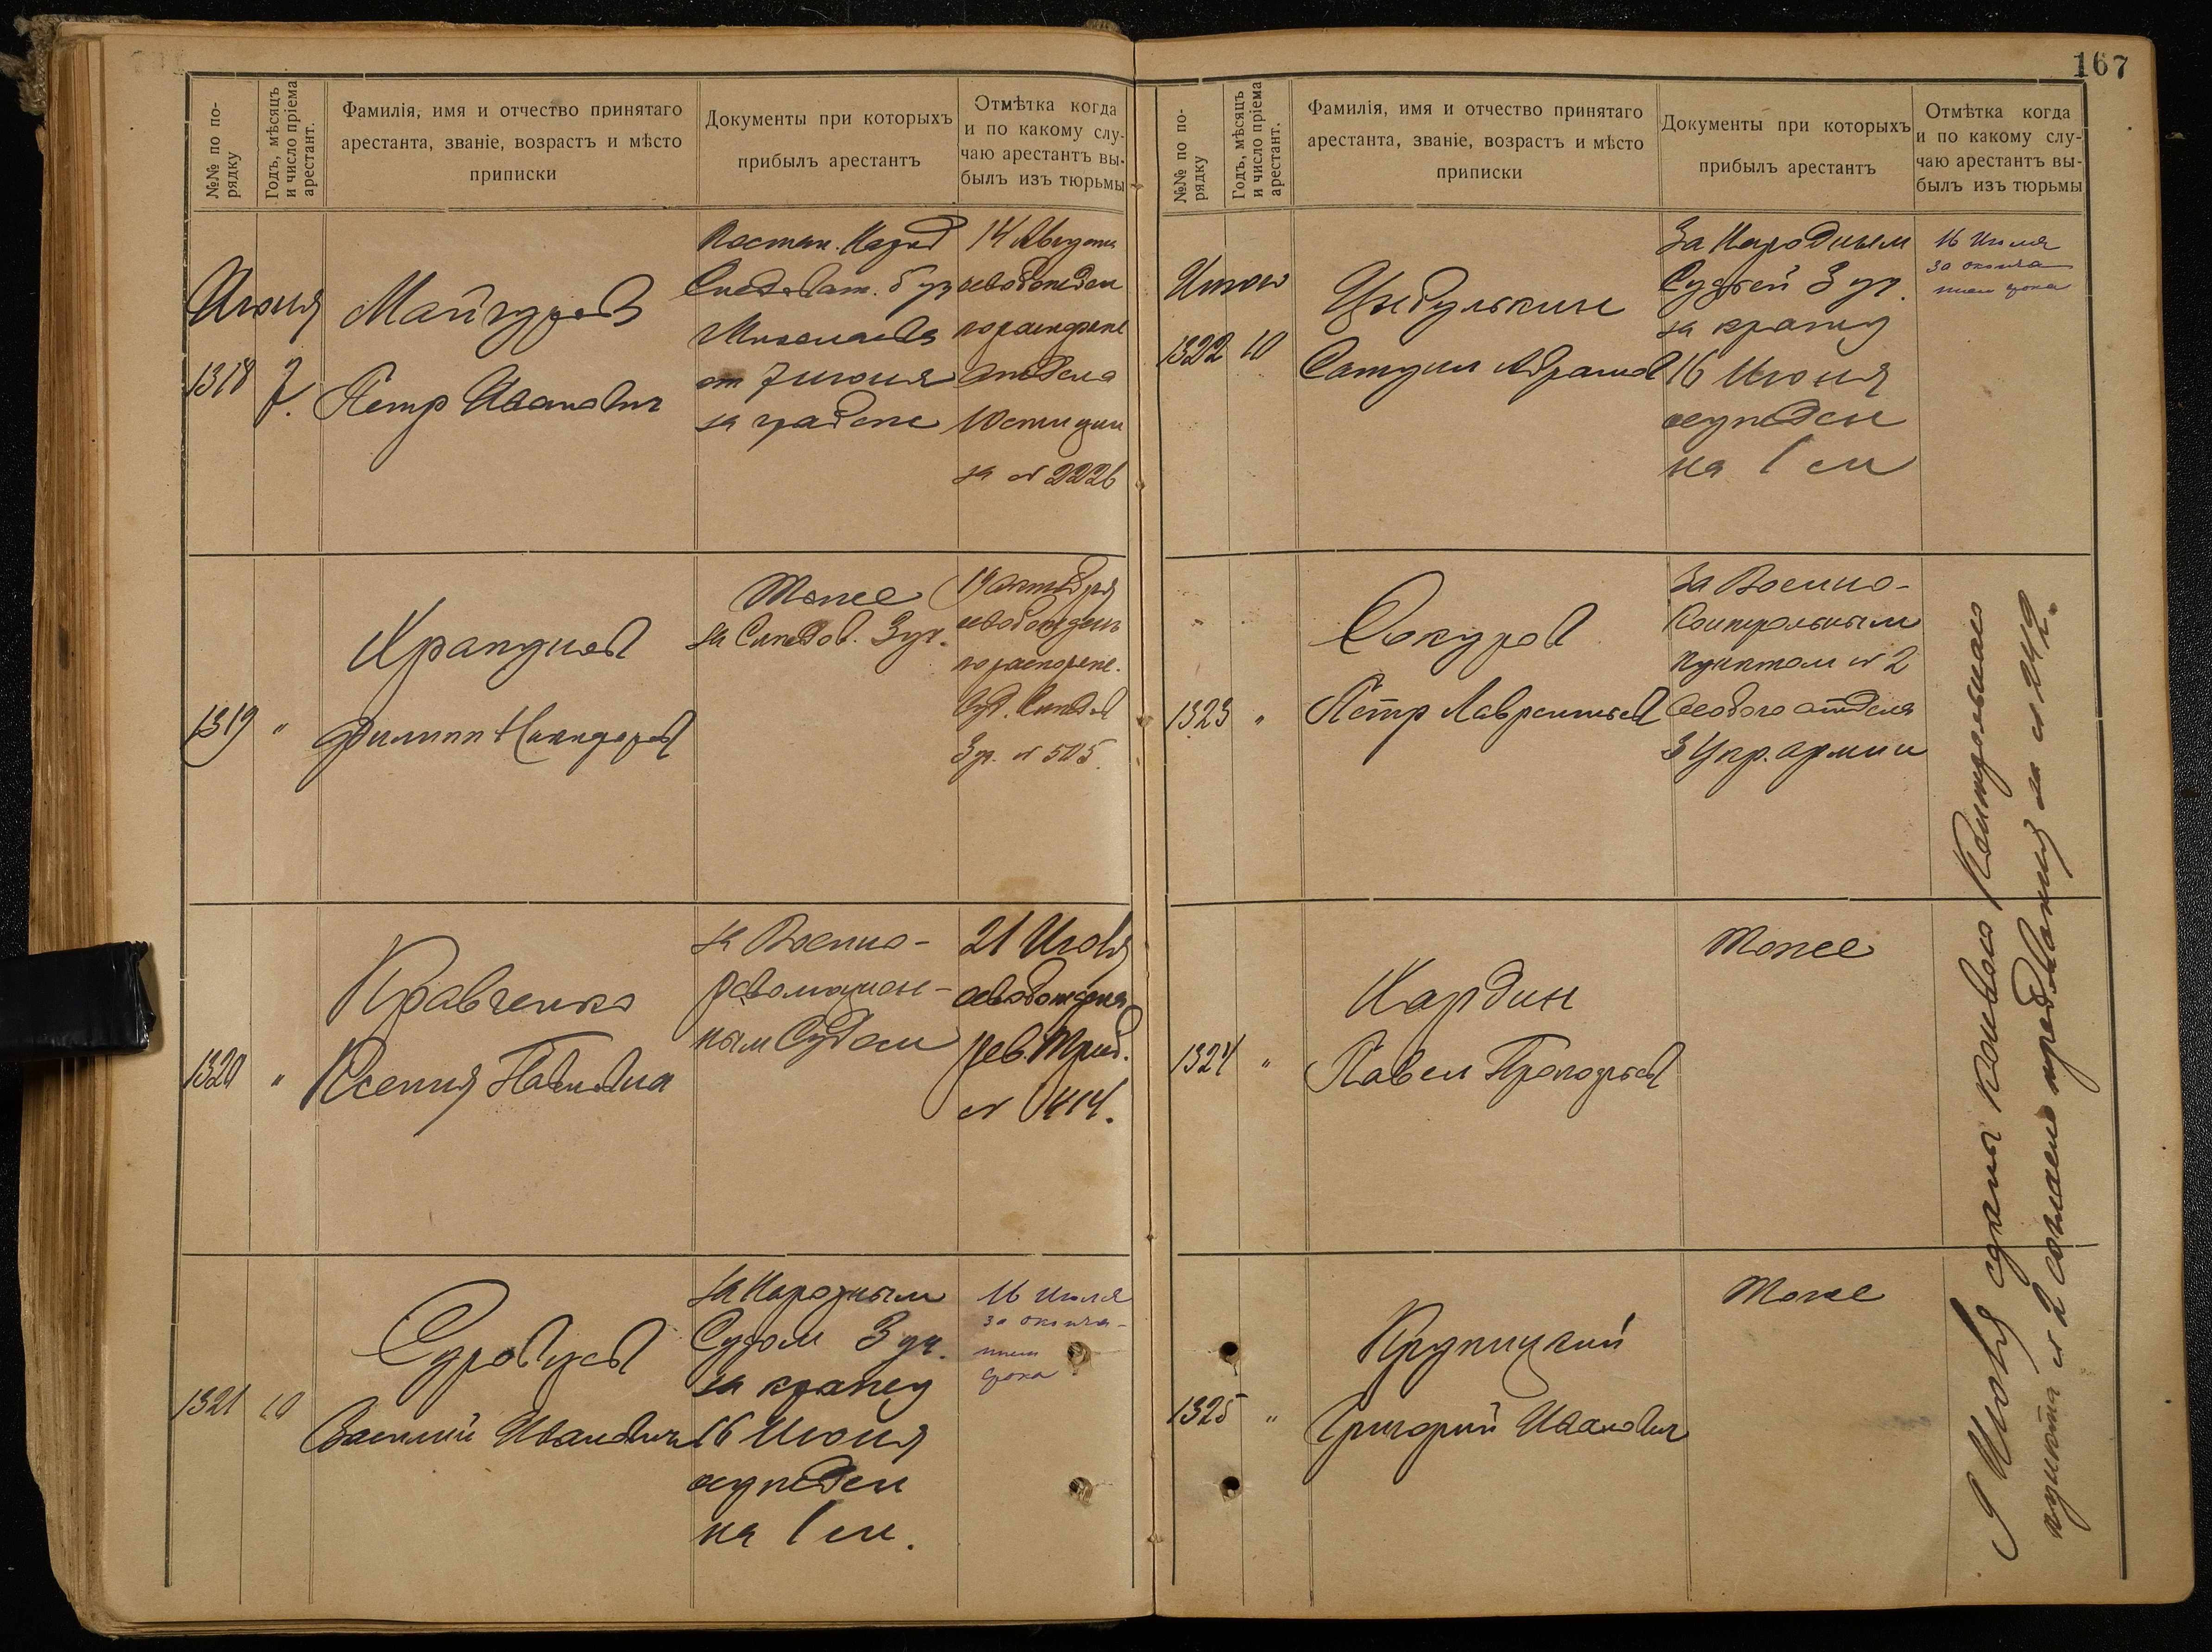 №№ по по-
рядку
Годъ, мѣсяцъ
и число пріема
арестант.
Фамилія, имя и отчество принятаго
арестанта, званіе, возрастъ и мѣсто
приписки
Документы при которыхъ
прибылъ арестантъ
Отмѣтка когда
и по какому слу-
чаю арестантъ вы-
былъ изъ тюрьмы
Июня
1318 7.
Майгуров
Петр Иванович
Постан. Народ
Следоват. 6 уч
Николаева
от 7 июня
за грабеж
14 Августа
освобожден
по распоряже
Отдела
Юстиции
за № 2226
1319 "
Филипп Никандров
Тоже
за Следов. 3 уч.
19 октября
освобожден
по распоряже.
Суд. Следов
3 уч. № 505.
1320 "
Кравченко
Ксения Павловна
за Военно-
революцион-
ным Судом
21 Июля
освобождена
Рев. Триб.
№ 1414.
1321 10
Суровцев
Василий Иванович
за Народным
Судом 3 уч.
за кражу
16 Июня
осужден
на 1 м.
16 Июля
за оконча-
нием
срока
167
№№ по по-
рядку
Годъ, мѣсяцъ
и число пріема
арестант.
Фамилія, имя и отчество принятаго
арестанта, званіе, возрастъ и мѣсто
приписки
Документы при которыхъ
прибылъ арестантъ
Отмѣтка когда
и по какому слу-
чаю арестантъ вы-
былъ изъ тюрьмы
Июнь
1322 10
Цыбулькин
Самуил Абрамов
За Народным
Судьей 3 уч.
за кражу
16 Июня
осужден
на 1 м
16 Июля
за оконча
нием срока
1323 "
Сокуров
Петр Лаврентьев
за Военно-
Контрольным
пунктом № 2
Особого отдела
3 Укр. армии
1324 "
Кардин
Павел Прокофьев
Тоже
1325 "
Крупицкий
Григорий Иванович
Тоже
9 Июля сданы конвою Контрольного
пункта № 2 согласно предписания за № 242.